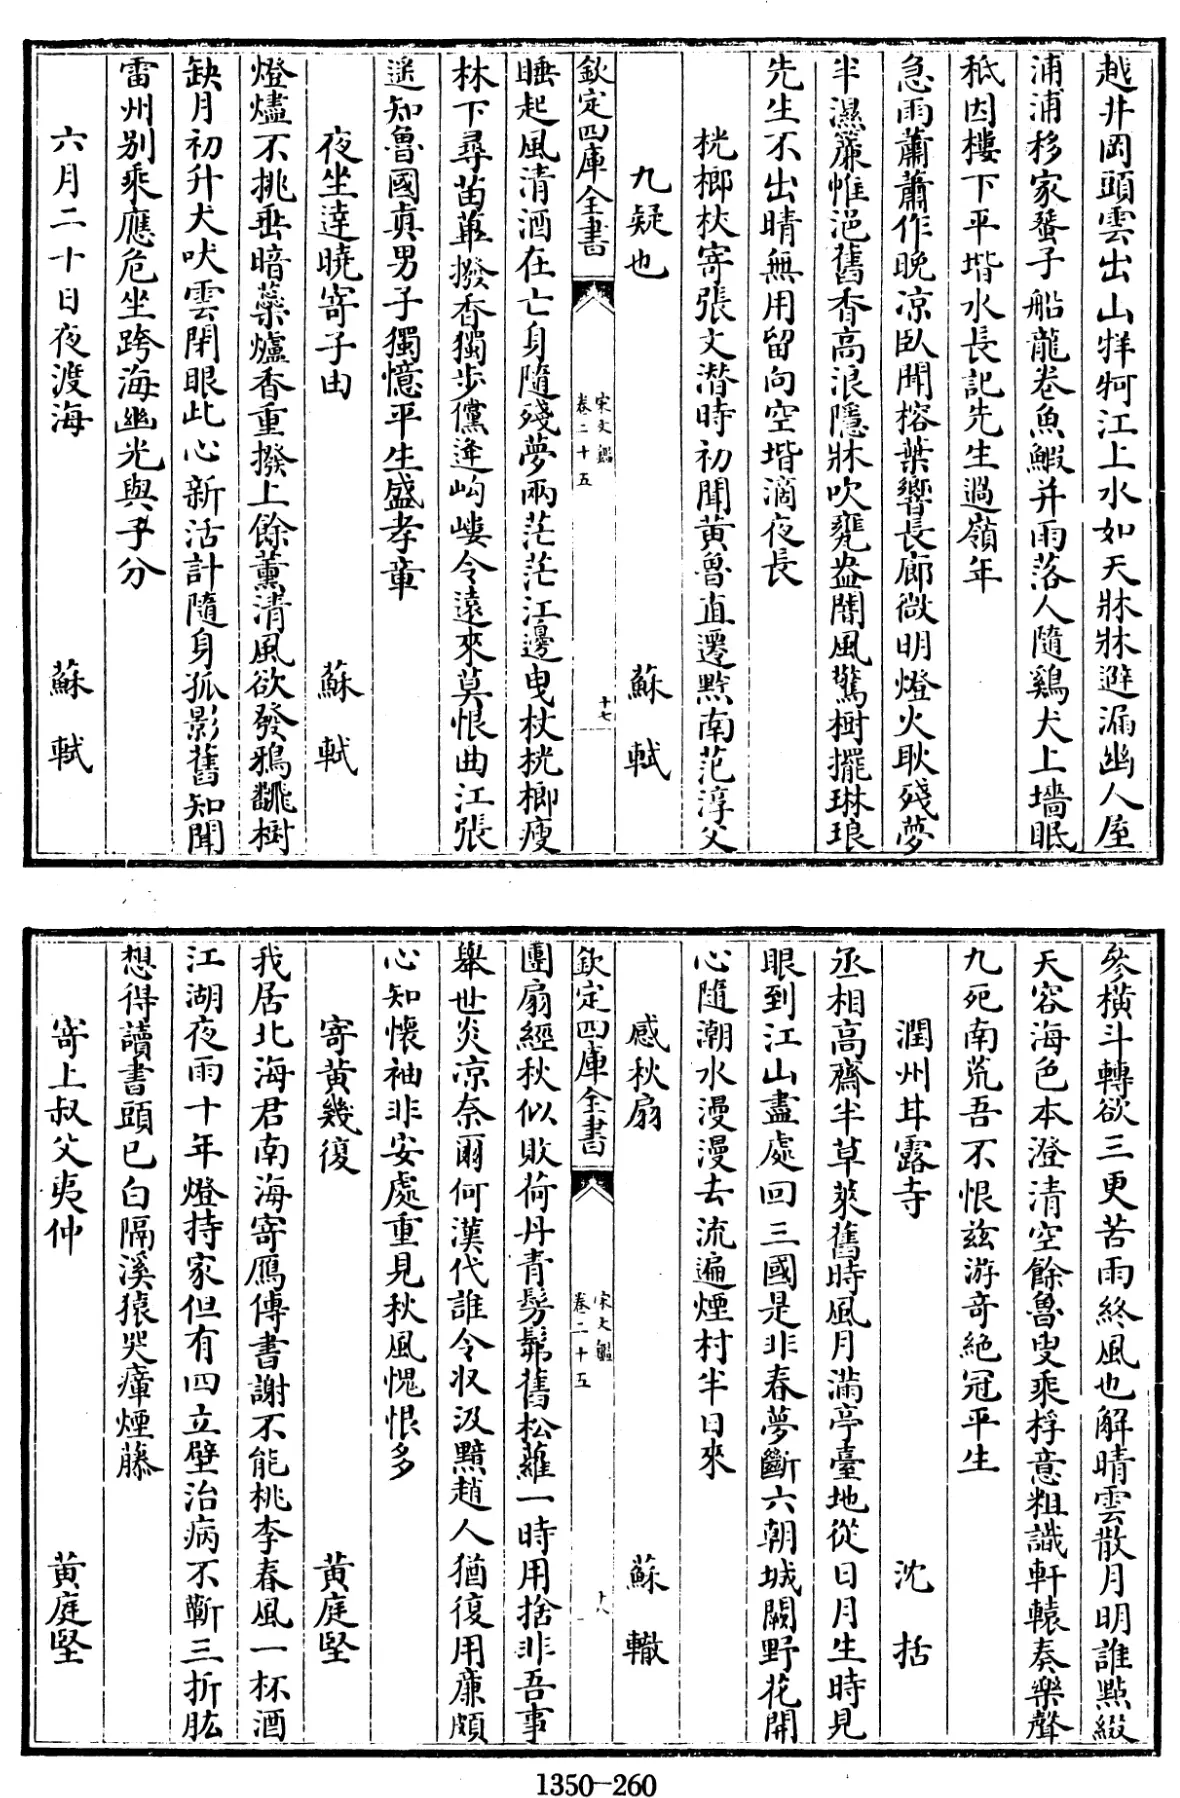 越井岡頭雲出山牂牁江上水如天牀牀避漏幽人屋
浦浦移家蜑子船龍卷魚鰕并雨落人隨鷄犬上墻眠
秪因樓下平堦水長記先生過嶺年
急雨蕭蕭作晚凉臥聞榕葉響長廊微明燈火耿殘夢
半濕簾帷浥舊香高浪隱牀吹甕盎闇風驚樹擺琳琅
先生不出晴無用留向空堦滴夜長
桄榔杖寄張文潛時初聞黃魯直遷黔南范淳父
九疑也 蘇軾
欽定四庫全書
宋文鑑
卷二十五
十七
睡起風清酒在亡身隨殘夢兩茫茫江邊曳杖桄榔瘦
林下尋苗蓽撥香獨步儻逢岣嶁令遠來莫恨曲江張
遥知魯國真男子獨憶平生盛孝章
夜坐逹曉寄子由 蘇軾
燈燼不挑垂暗蘂爐香重撥上餘薰清風欲發鴉翻樹
缺月初升犬吠雲閉眼此心新活計隨身孤影舊知聞
雷州别乘應危坐跨海幽光與子分
六月二十日夜渡海 蘇軾
參横斗轉欲三更苦雨終風也解晴雲散月明誰點綴
天容海色本澄清空餘魯叟乘桴意粗識軒轅奏樂聲
九死南荒吾不恨兹游奇絶冠平生
潤州甘露寺 沈括
丞相高齋半草萊舊時風月滿亭臺地從日月生時見
眼到江山盡處回三國是非春夢斷六朝城闕野花開
心隨潮水漫漫去流遍煙村半日來
感秋扇 蘇轍
欽定四庫全書
宋文鑑
卷二十五
十八
團扇經秋似敗荷丹青髣髴舊松蘿一時用捨非吾事
舉世炎凉奈爾何漢代誰令收汲黯趙人猶復用廉頗
心知懷袖非安處重見秋風愧恨多
寄黃幾復 黄庭堅
我居北海君南海寄鴈傳書謝不能桃李春風一杯酒
江湖夜雨十年燈持家但有四立壁治病不蘄三折肱
想得讀書頭已白隔溪猿哭瘴煙藤
寄上叔父夷仲 黄庭堅
1350-260